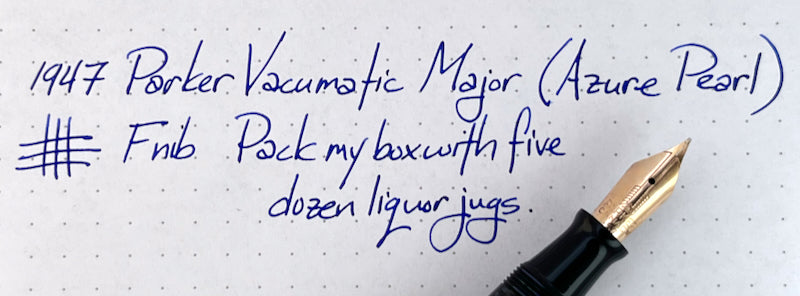 1947 Parker Vacumatic Major (Azure Pearl)
F nib Pack my box with five
dozen liquor jugs.